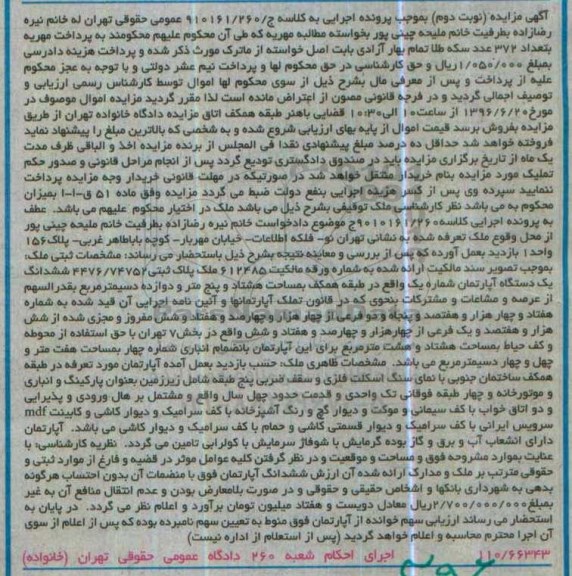 آگهی مزایده (نوبت دوم) بموجب پرونده اجرایی به کلاسه ج/۹۱۰۱۶۱/۲۶۰ عمومی حقوقی تهران له خانم نیره
رضازاده بطرفیت خانم ملیحه چینی پور بخواسته مطالبه مهریه که طی آن محکوم علیهم محکومند به پرداخت مهریه
بتعداد ۳۷۲ عدد سکه طلا تمام بهار آزادی بابت اصل خواسته از ماترک مورث ذکر شده و پرداخت هزینه دادرسی
بمبلغ ۱/۰۵۰/۰۰۰ ریال و حق کارشناسی در حق محکوم لها و پرداخت نیم عشر دولتی و با توجه به عجز محکوم
علیه از پرداخت و پس از معرفی مال بشرح ذیل از سوی محکوم لها اموال توسط کارشناس رسمی ارزیابی و
توصیف اجمالی گردید و در فرجه قانونی مصون از اعتراض مانده است لذا مقرر گردید مزایده اموال موصوف در
مورخ ۱۳۹۶/۶/۲۰ از ساعت ۱۰ الی ۱۰:۳۰ قضایی باهنر طبقه همکف اتاق مزایده دادگاه خانواده تهران از طریق
مزایده بفروش برسد قیمت اموال از پایه بهای ارزیابی شروع شده و به شخصی که بالاترین مبلغ را پیشنهاد نماید
فروخته خواهد شد حداقل ده درصد مبلغ پیشنهادی نقدا فی المجلس از برنده مزایده اخذ و الباقی ظرف مدت
یک ماه از تاریخ برگزاری مزایده باید در صندوق دادگستری تودیع گردد پس از انجام مراحل قانونی و صدور حکم
تملیک مورد مزایده بنام خریدار منتقل خواهد شد در صورتیکه در مهلت قانونی خریدار وجه مزایده پرداخت
ننمایید سپرده وی پس از کسر هزینه اجرایی بنفع دولت ضبط می گردد مزایده وفق ماده ۵۱ ق-ا-ا بمیزان
محکوم به می باشد نظر کارشناسی ملک توقیفی بشرح ذیل می باشد ملک در اختیار محکوم علیهم می باشد. عطف
به پرونده اجرایی کلاسه ۹۰۱۰۱۶۱/۲۶۰ج موضوع دادخواست خانم نیره رضازاده بطرفیت خانم ملیحه چینی پور
از محل وقوع ملک تعرفه شده به نشانی تهران نو- فلکه اطلاعات- خیابان مهربار- کوچه باباطاهر غربی- پلاک ۱۵۶
واحد ۱ بازدید بعمل آورده که پس از بررسی و معاینه نتیجه بشرح ذیل باستحضار می رساند: مشخصات ثبتی ملک:
بموجب تصویر سند مالکیت ارائه شده به شماره ورقه مالکیت ۶۱۲۴۸۵ ملک پلاک ثبتی ۴۴۷۶/۷۴۷۵۲ ششدانگ
یک دستگاه آپارتمان شماره یک واقع در طبقه همکف بمساحت هشتاد و پنج متر و دوازده دسیمترمربع بقدر السهم
از عرصه و مشاعات و مشترکات بنحوی که در قانون تملک آپارتمانها و آئین نامه اجرایی آن قید شده به شماره
هفتاد و چهار هزار و هفتصد و پنجاه و دو فرعی از چهار هزار و چهارصد و هفتاد و شش مفروز و مجزی شده از شش
هزار و هفتصد و یک فرعی از چهارهزار و چهارصد و هفتاد و شش واقع در بخش ۷ تهران با حق استفاده از محوطه
و کف حیاط بمساحت هشتاد و هشت مترمربع برای این آپارتمان بانضمام انباری شماره چهار بمساحت هفت متر و
چهل و چهار دسیمترمربع می باشد. مشخصات ظاهری ملک: حسب بازدید بعمل آمده آپارتمان مورد تعرفه در طبقه
همکف ساختمان جنوبی با نمای سنگ اسکلت فلزی و سقف ضربی پنج طبقه شامل زیرزمین بعنوان پارکینگ و انباری
و موتورخانه و چهار طبقه فوقانی تک واحدی و قدمت حدود چهل سال واقع و مشتمل بر هال ورودی و پذیرایی
و دو اتاق خواب با کف سیمانی و موکت و دیوار گچ و رنگ آشپزخانه با کف سرامیک و دیوار کاشی و کابینت mdf
سرویس ایرانی با کف سرامیک و دیوار قسمتی کاشی و حمام با کف سرامیک و دیوار کاشی می باشد. آپارتمان
دارای انشعاب آب و برق و گاز بوده گرمایش با شوفاژ سرمایش با کولرابی تامین می گردد. نظریه کارشناسی: با
عنایت بموارد مشروحه فوق و مساحت و موقعیت و در نظر گرفتن کلیه عوامل موثر در قضیه و فارغ از موارد ثبتی و
حقوقی مترتب بر ملک و مدارک ارائه شده آن ارزش ششدانگ آپارتمان فوق با منضمات آن بدون احتساب هرگونه
بدهی به شهرداری بانکها و اشخاص حقیقی و حقوقی و در صورت بلامعارض بودن و عدم انتقال منافع آن به غیر
بمبلغ ۲/۷۰۰/۰۰۰/۰۰۰ ریال معادل دویست و هفتاد میلیون تومان برآورد و اعلام نظر می گردد. در پایان به
استحضار می رساند ارزیابی سهم خوانده از آپارتمان فوق منوط به تعیین سهم نامبرده بوده که پس از اعلام از سوی
آن اجرا محترم محاسبه و اعلام خواهد گردید (پس از استعلام از اداره نیست)
۱۱۰/۶۶۳۴۳ اجرای احکام شعبه ۲۶۰ دادگاه عمومی حقوقی تهران (خانواده)